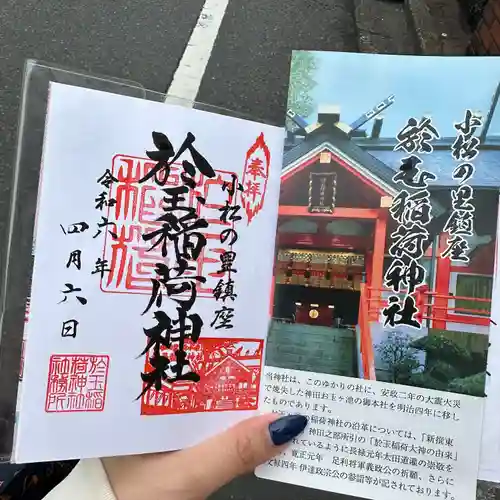 奉拝
小松の里鎮座
於玉稲荷神社
令和六年
四月六日
於玉稲
荷神社
社務所
小松の里鎮座
於玉稲荷神社
当神社は、このゆかりの社に、安政二年の大震火災
で焼失した神田お玉ヶ池の御本社を明治四年に移し
たものであります。
稲荷神社の沿革については、「新撰東
神田之部所引の「於玉稲荷大神の由来」
れているように長禄元年太田道灌の崇敬を
寛正元年 足利将軍義政公の祈願、さらに
四年 伊達政宗公の参詣等が記されております。